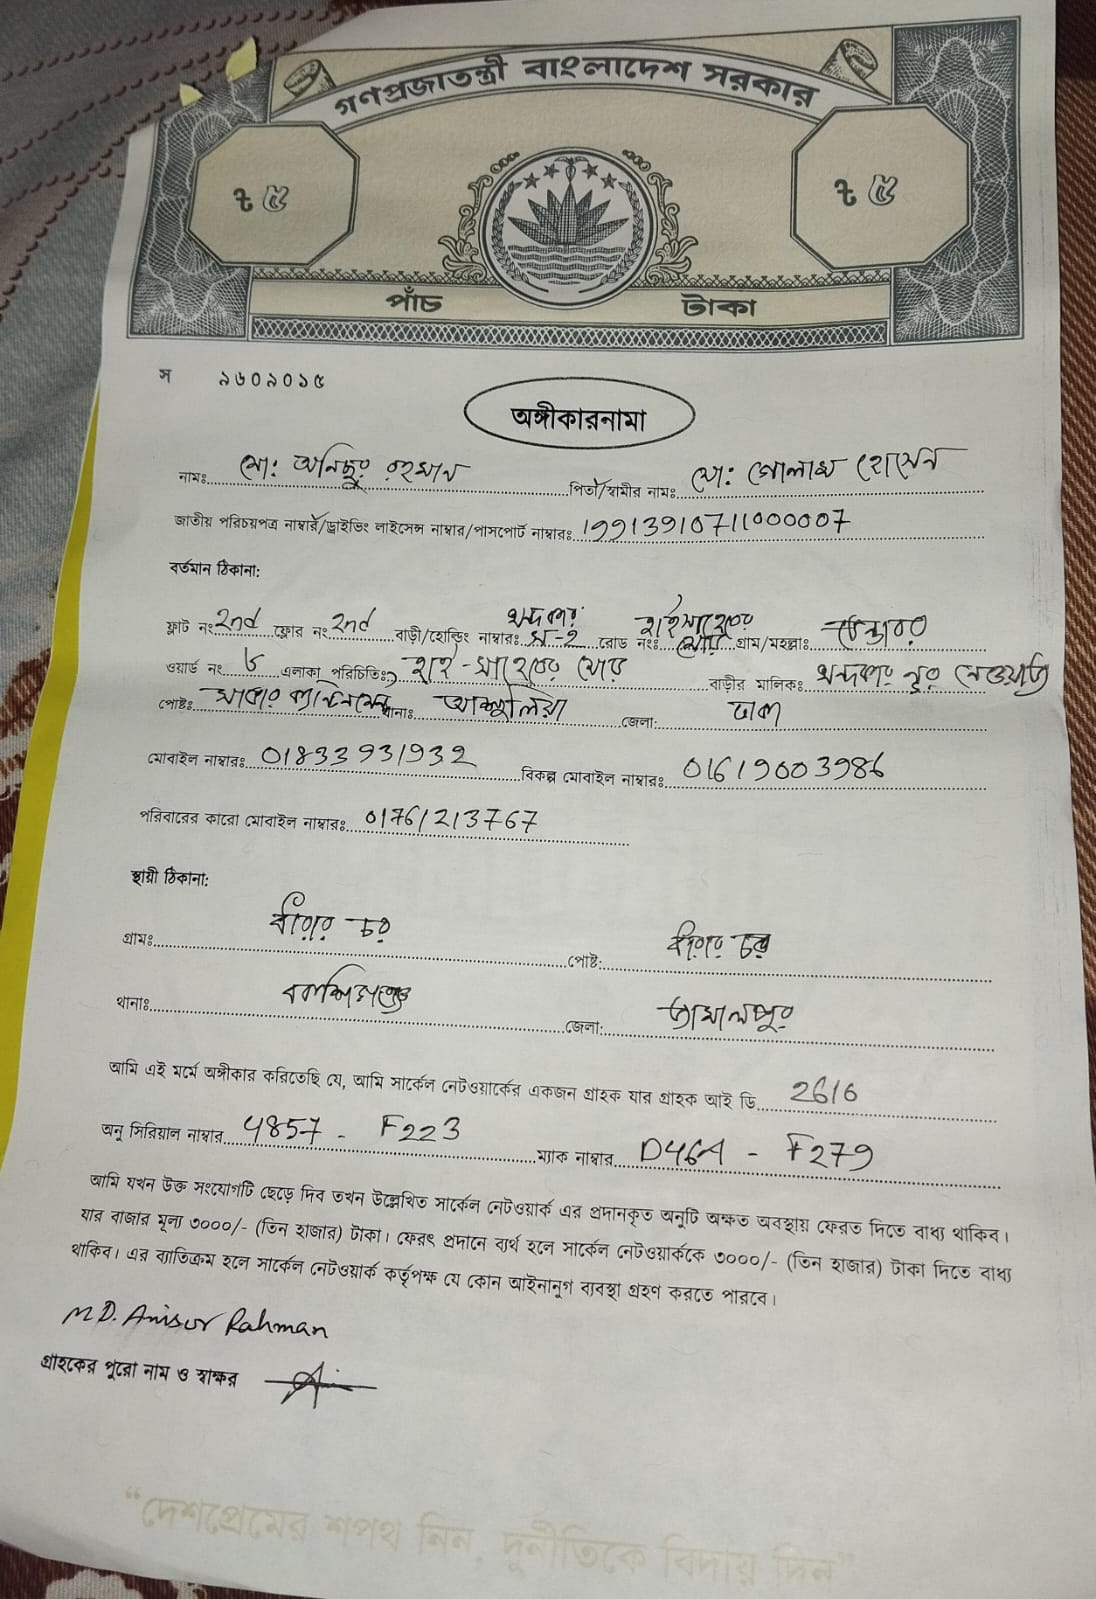 গণপ্রজাতন্ত্রী বাংলাদেশ সরকার
৳ ৫ ৳ ৫
পাঁচ টাকা
স ৯৬০৯০১৫
অঙ্গীকারনামা
নামঃ মোঃ অনিছুর রহমান পিতা/স্বামীর নামঃ মোঃ গোলাম হোসেন
জাতীয় পরিচয়পত্র নাম্বার/ড্রাইভিং লাইসেন্স নাম্বার/পাসপোর্ট নাম্বারঃ 19913910711000007
বর্তমান ঠিকানা:
ফ্লাট নং 2nd ফ্লোর নং 2nd বাড়ী/হোল্ডিং নাম্বারঃ খন্দকার স-2 রোড নংঃ হাইসাহেবের মোড় গ্রাম/মহল্লাঃ
ওয়ার্ড নং ৬ এলাকা পরিচিতিঃ হাই-সাহেবের মোড় বাড়ীর মালিকঃ খন্দকার নুর নেওয়াজ
পোষ্টঃ সাভার ক্যান্টনমেন্ট থানাঃ আশুলিয়া জেলা: ঢাকা
মোবাইল নাম্বারঃ 01833931932 বিকল্প মোবাইল নাম্বারঃ 01619003986
পরিবারের কারো মোবাইল নাম্বারঃ 01761213767
স্থায়ী ঠিকানা:
গ্রামঃ বীরার চর পোষ্ট: বীরার চর
থানাঃ বকশিগঞ্জ জেলা: জামালপুর
আমি এই মর্মে অঙ্গীকার করিতেছি যে, আমি সার্কেল নেটওয়ার্কের একজন গ্রাহক যার গ্রাহক আই ডি 2616
অনু সিরিয়াল নাম্বার 4857 - F223 ম্যাক নাম্বার D46A - F279
আমি যখন উক্ত সংযোগটি ছেড়ে দিব তখন উল্লেখিত সার্কেল নেটওয়ার্ক এর প্রদানকৃত অনুটি অক্ষত অবস্থায় ফেরত দিতে বাধ্য থাকিব।
যার বাজার মূল্য ৩০০০/- (তিন হাজার) টাকা। ফেরৎ প্রদানে ব্যর্থ হলে সার্কেল নেটওয়ার্ককে ৩০০০/- (তিন হাজার) টাকা দিতে বাধ্য
থাকিব। এর ব্যাতিক্রম হলে সার্কেল নেটওয়ার্ক কর্তৃপক্ষ যে কোন আইনানুগ ব্যবস্থা গ্রহণ করতে পারবে।
MD. Anisur Rahman
গ্রাহকের পুরো নাম ও স্বাক্ষর
“দেশপ্রেমের শপথ নিন, দুর্নীতিকে বিদায় দিন”